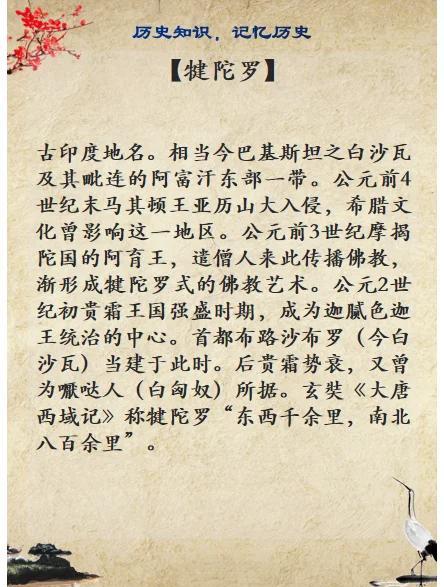 历史知识，记忆历史
【犍陀罗】
古印度地名。相当今巴基斯坦之白沙瓦
及其毗连的阿富汗东部一带。公元前4
世纪末马其顿王亚历山大入侵，希腊文
化曾影响这一地区。公元前3世纪摩揭
陀国的阿育王，遣僧人来此传播佛教，
渐形成犍陀罗式的佛教艺术。公元2世
纪初贵霜王国强盛时期，成为迦腻色迦
王统治的中心。首都布路沙布罗（今白
沙瓦）当建于此时。后贵霜势衰，又曾
为嚈哒人（白匈奴）所据。玄奘《大唐
西域记》称犍陀罗“东西千余里，南北
八百余里”。